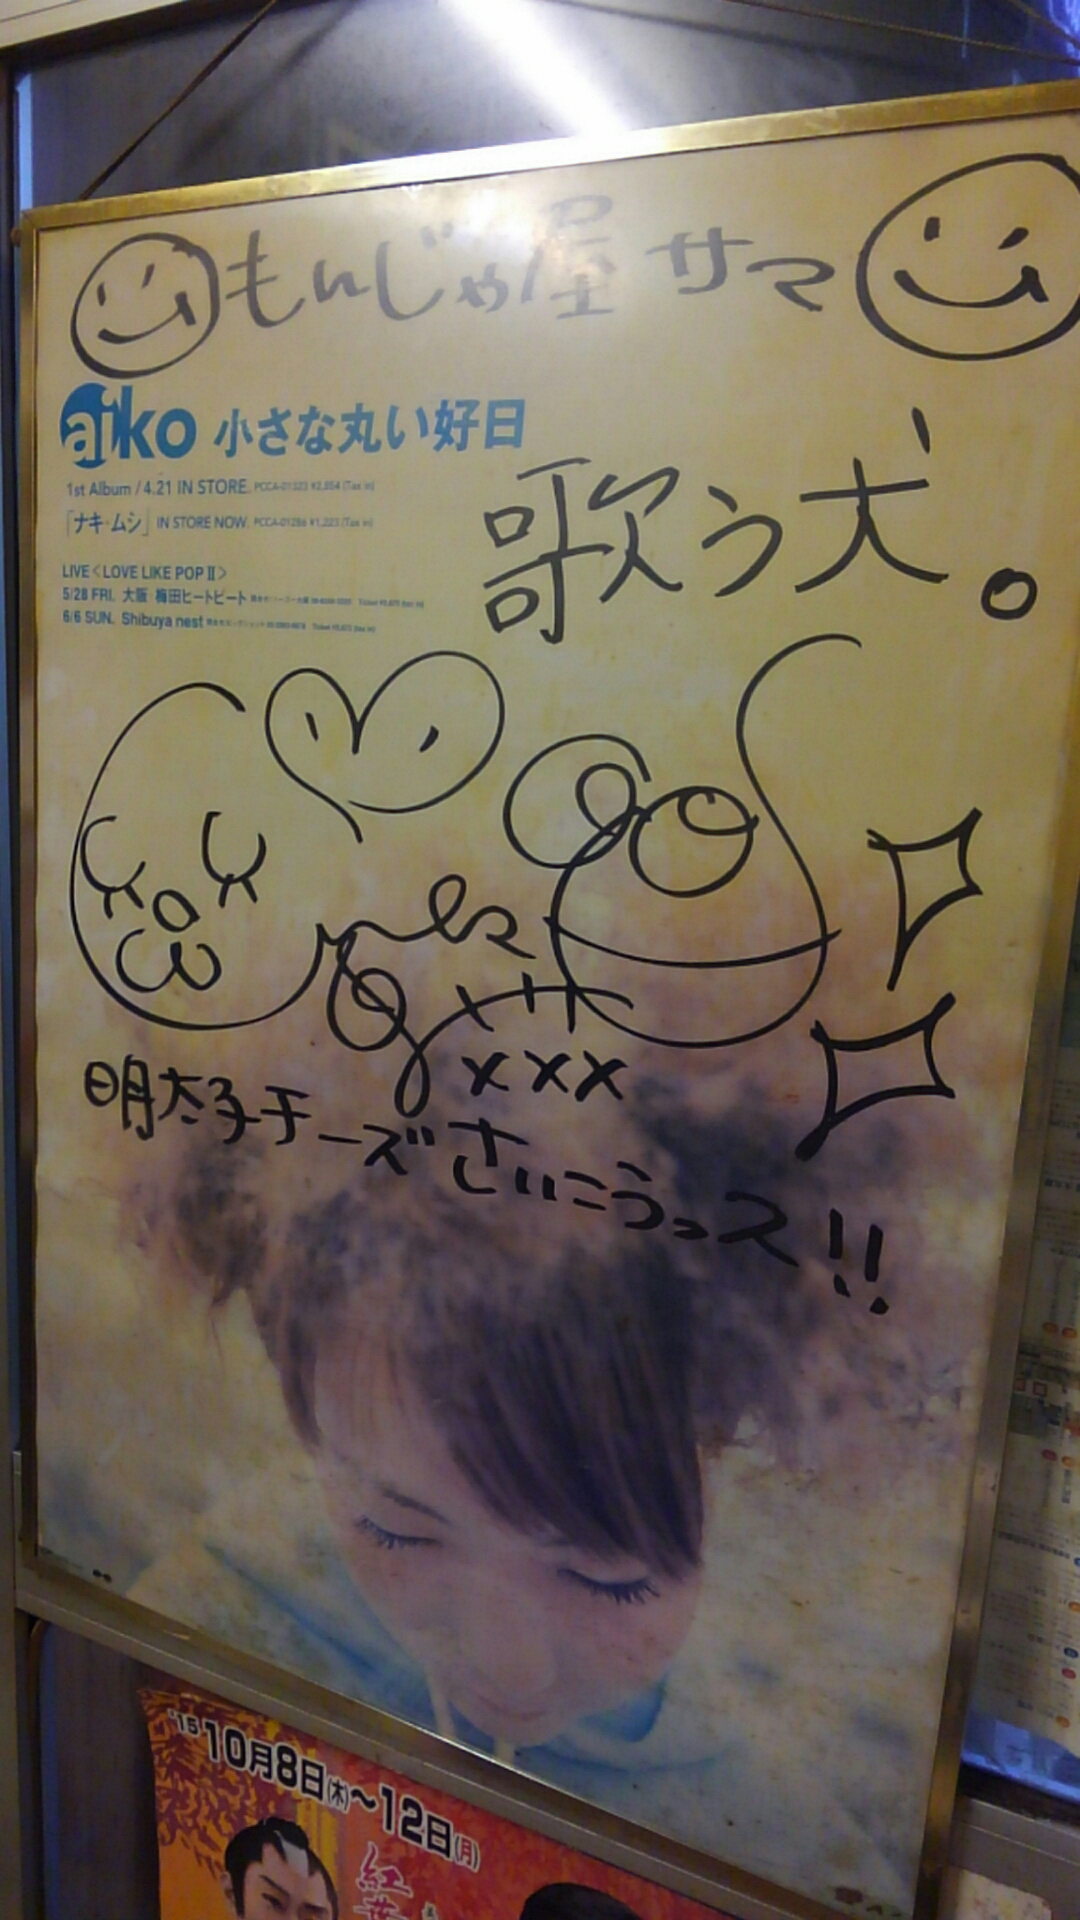 もんじゃ屋サマ
aiko 小さな丸い好日
1st Album / 4.21 IN STORE. PCCA-01323 ¥2,854 (Tax in)
「ナキ・ムシ」 IN STORE NOW. PCCA-01286 ¥1,223 (Tax in)
LIVE <LOVE LIKE POP Ⅱ>
5/28 FRI. 大阪・梅田ヒートビート
6/6 SUN. Shibuya nest
歌う犬。
×××
明太子チーズさいこうっス!!
'15 10月8日(木)〜12日(月)
紅葉